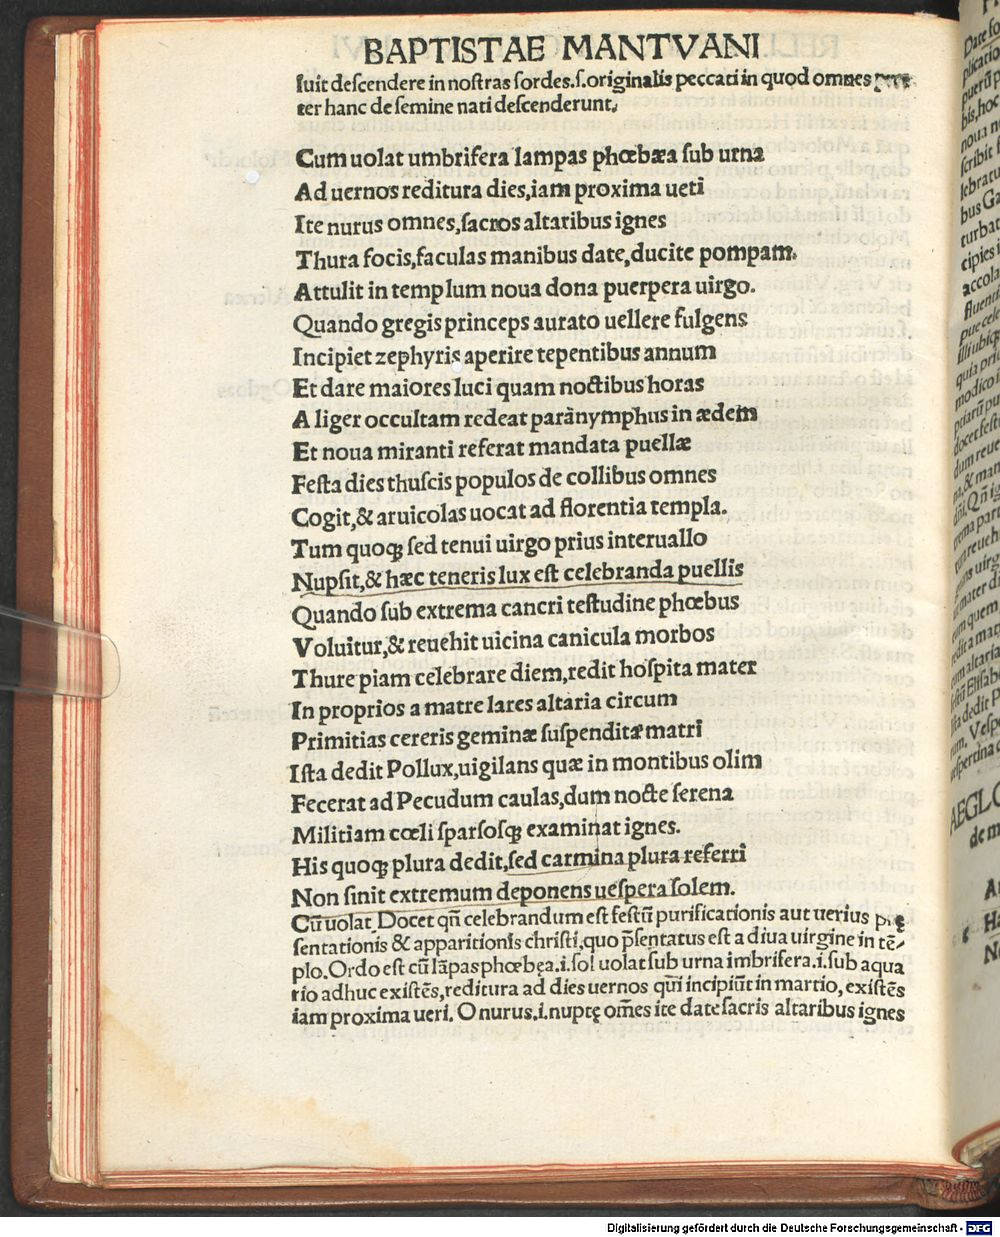 BAPTISTAE MANTVANI
luit deſcendere in noſtras ſordes.ſ.originalis peccati in quod omnes
ter hanc de ſemine nati deſcenderunt.
Cum uolat umbrifera lampas phœbæa ſub urna
Ad uernos reditura dies,iam proxima ueti
Ite nurus omnes,ſacros altaribus ignes
Thura focis,faculas manibus date,ducite pompam.
Attulit in templum noua dona puerpera uirgo.
Quando gregis princeps aurato uellere fulgens
Incipiet zephyris aperire tepentibus annum
Et dare maiores luci quam noctibus horas
A liger occultam redeat paranymphus in ædem
Et noua miranti referat mandata puellæ
Feſta dies thuſcis populos de collibus omnes
Cogit,& aruicolas uocat ad florentia templa.
Tum quoqꝫ ſed tenui uirgo prius interuallo
Nupſit,& hæc teneris lux eſt celebranda puellis
Quando ſub extrema cancri teſtudine phœbus
Voluitur,& reuehit uicina canicula morbos
Thure piam celebrare diem,redit hoſpita mater
In proprios a matre lares altaria circum
Primitias cereris geminæ ſuſpendite matri
Iſta dedit Pollux,uigilans quæ in montibus olim
Fecerat ad Pecudum caulas,dum nocte ſerena
Militiam cœli ſparſoſqꝫ examinat ignes.
His quoqꝫ plura dedit,ſed carmina plura referri
Non ſinit extremum deponens ueſpera ſolem.
Cū uolat Docet qn̄ celebrandum eſt feſtū purificationis aut uerius
ſentationis & apparitionis chriſti,quo p̄ſentatus eſt a diua uirgine in tē-
plo.Ordo eſt cū lāpas phœbęa.i.ſol uolat ſub urna imbrifera.i.ſub aqua
rio adhuc exiſtēs,reditura ad dies uernos qui incipiūt in martio, exiſtēs
iam proxima ueri. O nurus.i.nuptę om̄es ite date ſacris altaribus ignes
Digitalisierung gefördert durch die Deutsche Forschungsgemeinschaft - DFG